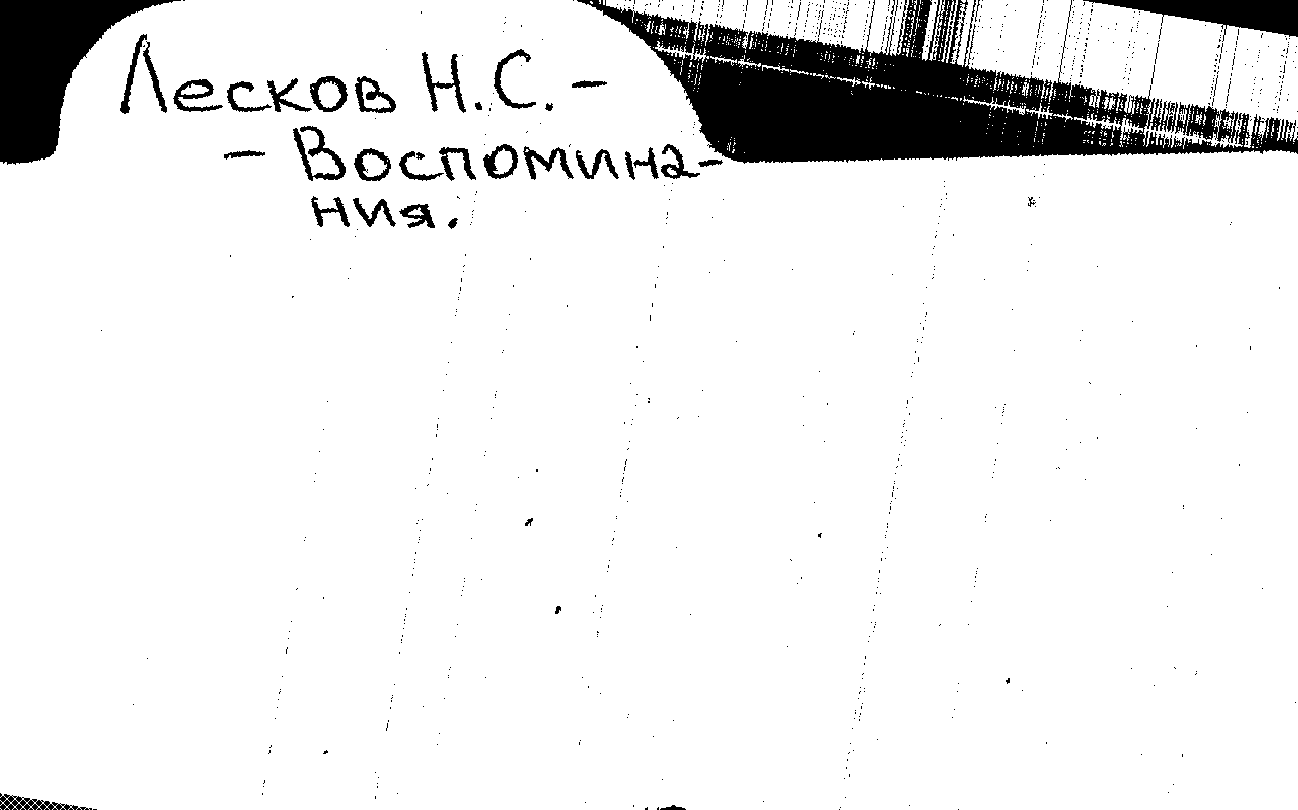 Лесков Н.С. -
- Воспомина-
ния.